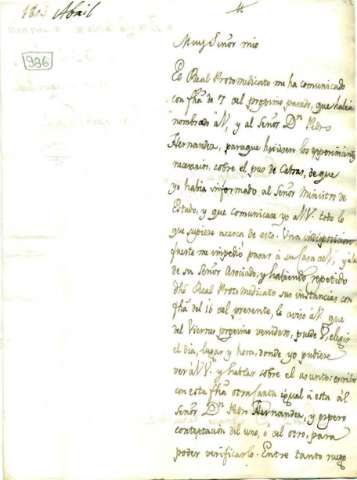 Abril
986
Muy Señor mio
El Real Protomedicato me ha comunicado
con fha de 7 del proximo pasado, que habia
nombrado á V. y al Señor Dn. Pedro
Hernandez, para que hiciesen los experimentos
necesarios, sobre el pus de Cabras, de que
yo habia informado al Señor Ministro de
Estado, y que comunicase yo a V. todo lo
que supiese acerca de esto. Una indisposicion
fuerte me impedio pasar á su casa de V. y á la
de su Señor Asociado, y habiendo repetido
dho Real Protomedicato sus instancias con
fha del 16 del presente, le aviso á V. que
del Viernes proximo venidero, puede V. eligir
el dia, lugar y hora, donde yo pudiere
ver á V. y hablar sobre el asunto: escribo
con esta fha otra carta igual á esta al
Señor Dn. Pedro Hernandez, y espero
contextacion del uno, o del otro, para
poder verificarlo. Entre tanto ruego